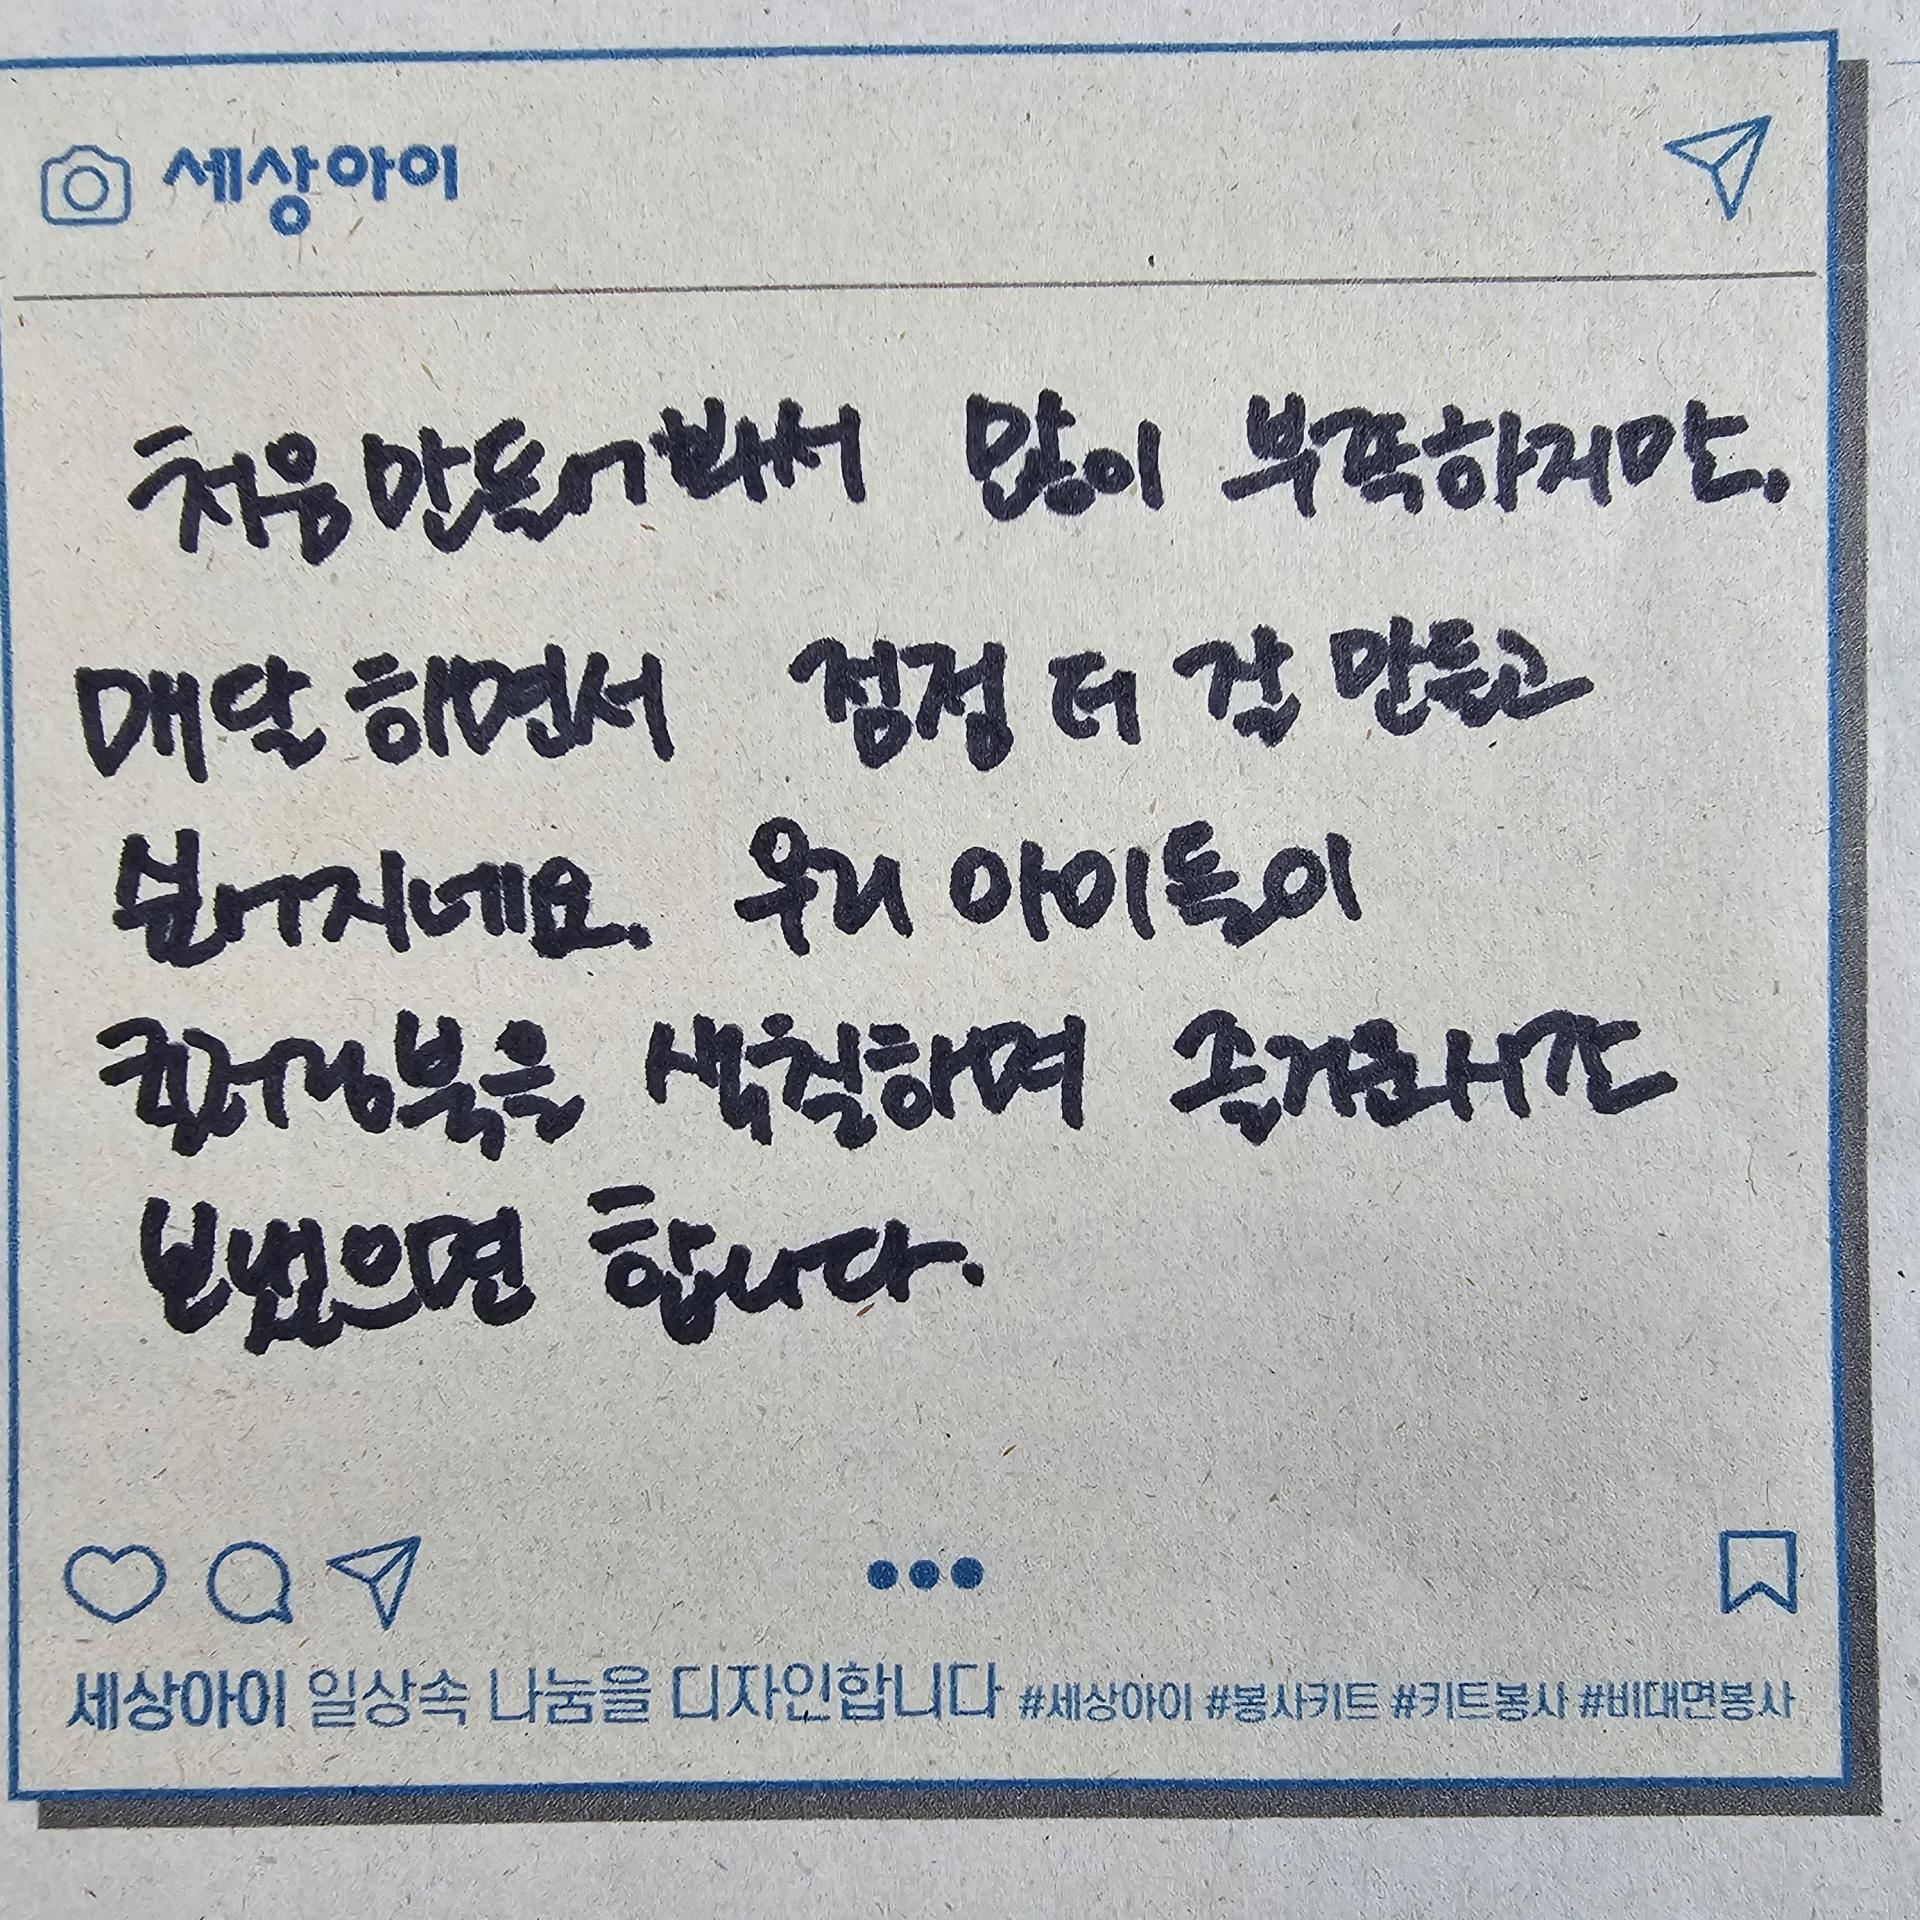 세상아이
처음 만들어봐서 많이 부족하지만.
매달 하면서 점점 더 잘 만들고
싶어지네요. 우리 아이들이
컬러링북을 색칠하며 즐거운 시간
보냈으면 합니다.
세상아이 일상속 나눔을 디자인합니다 #세상아이 #봉사키트 #키트봉사 #비대면봉사